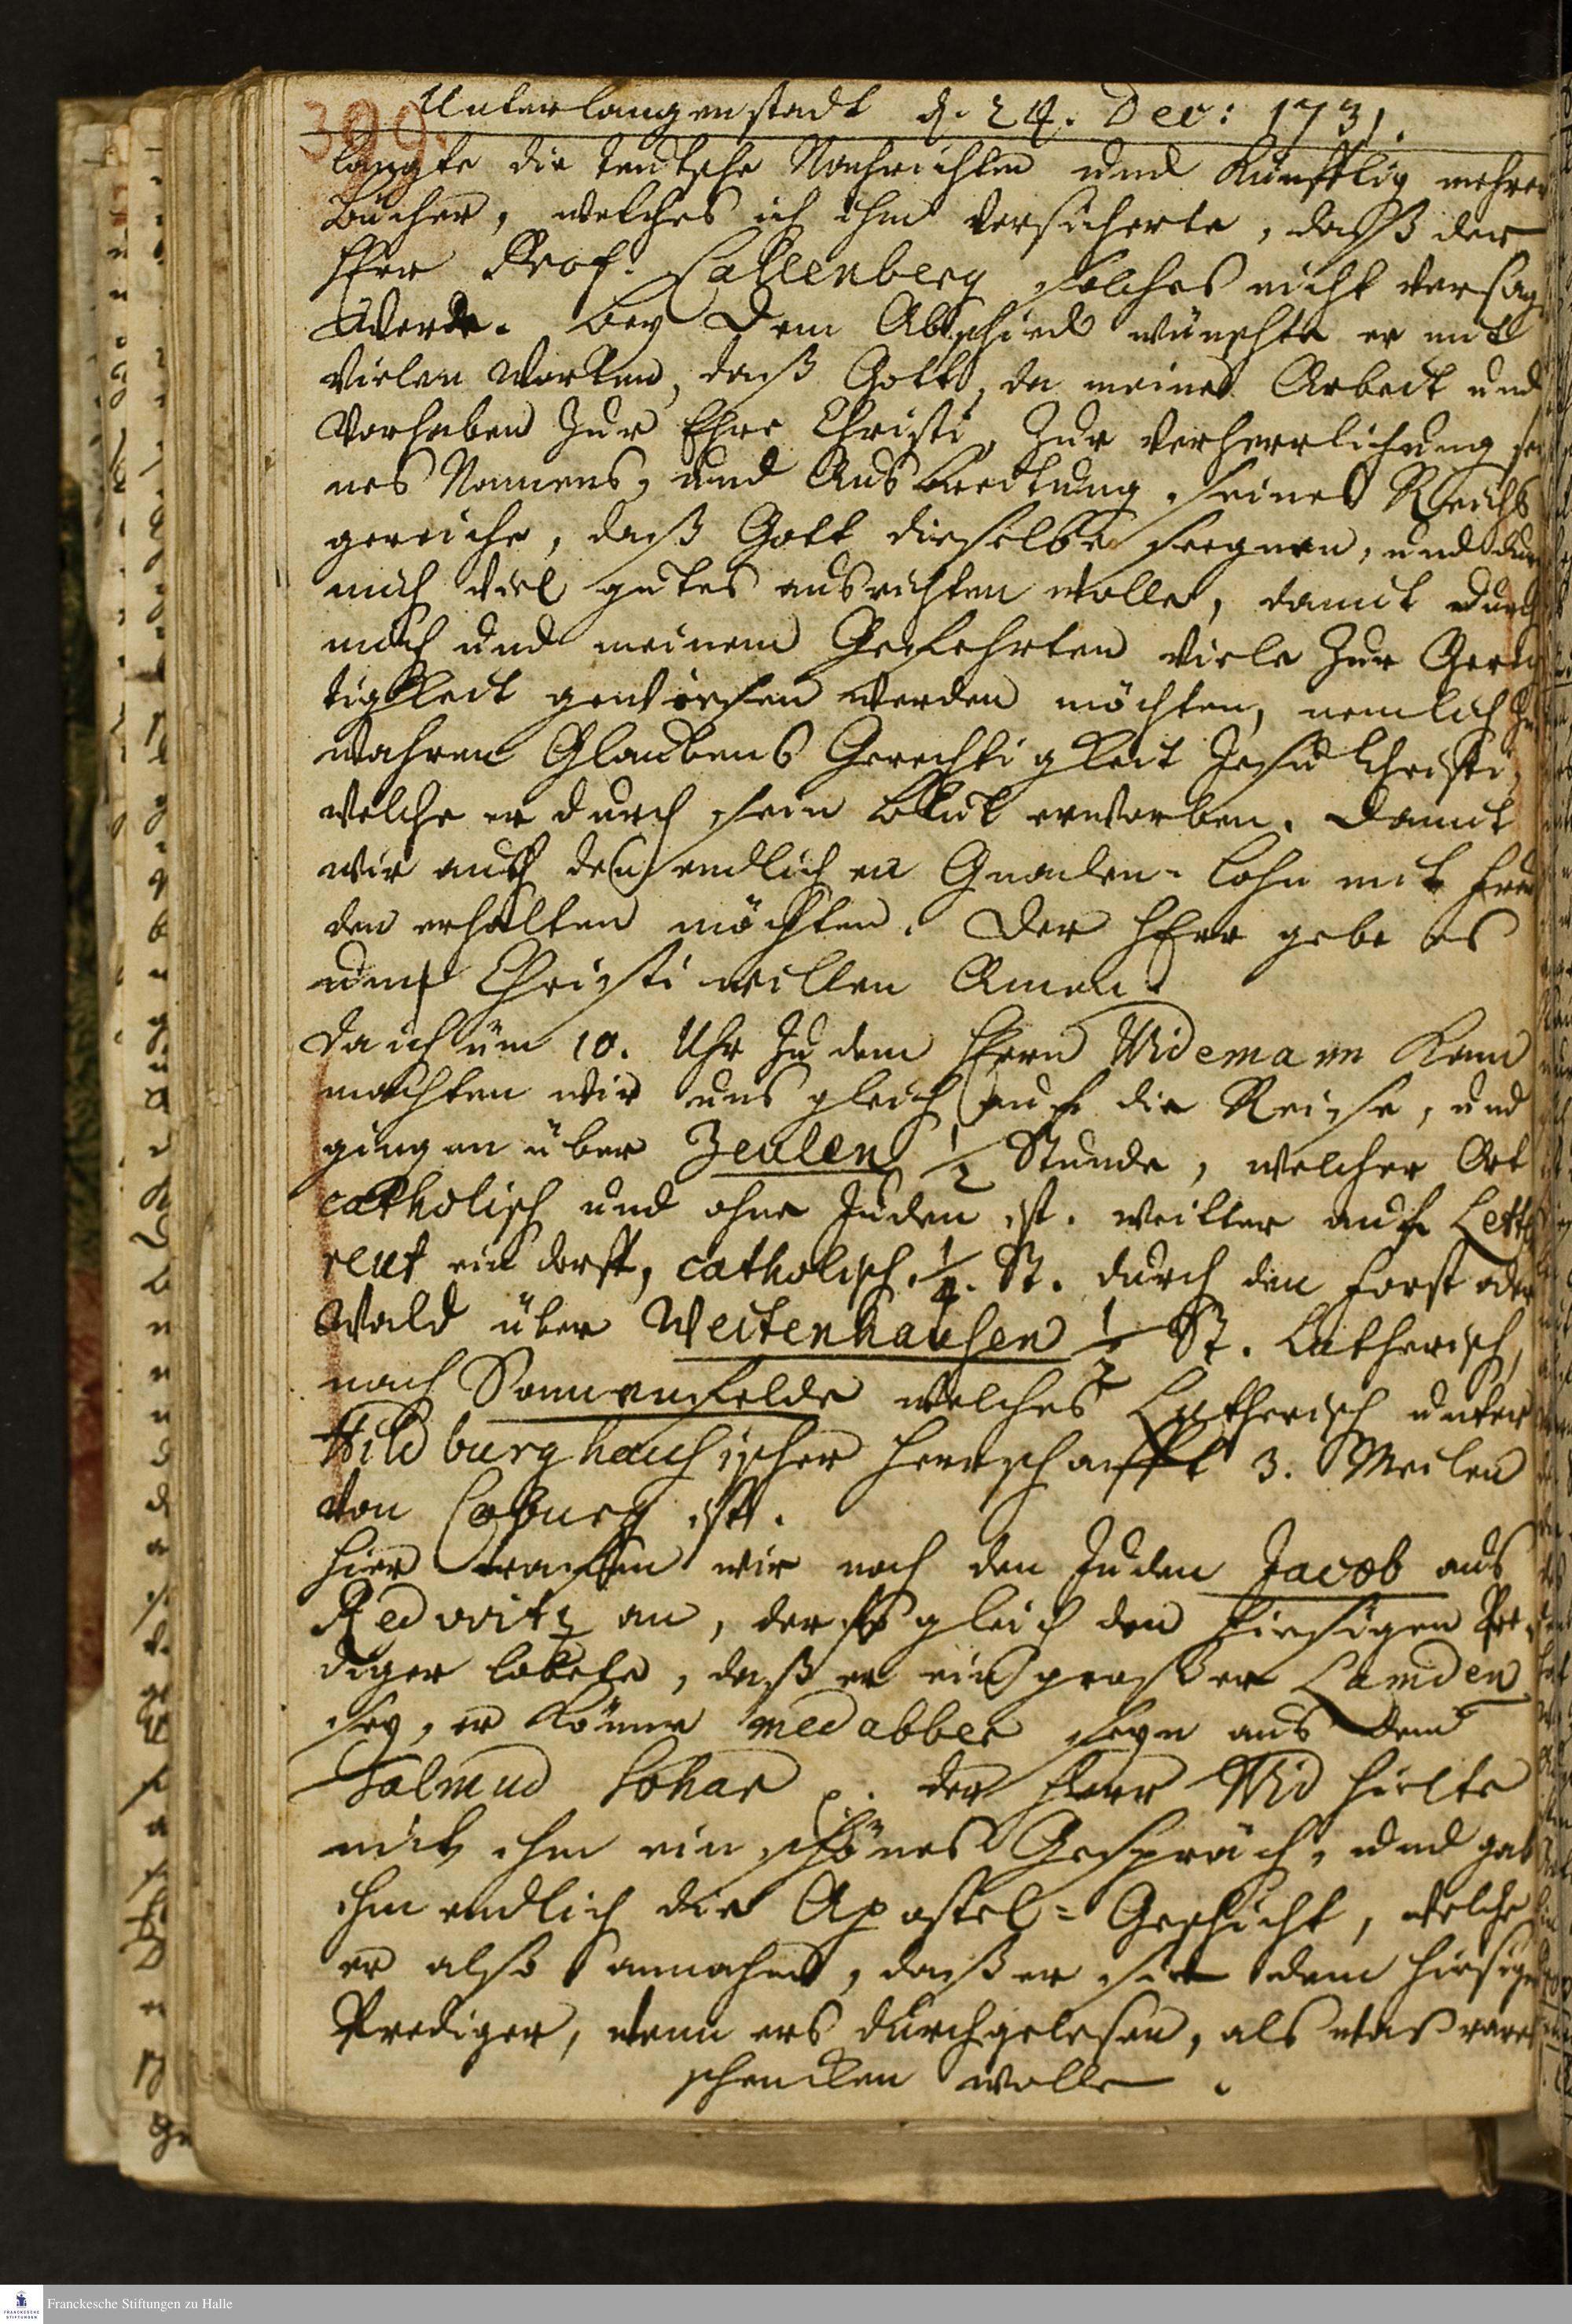 399.
Unterlangenstadt d. 24. Dec: 1731.
langte die teutsche Nachrichten und künfftig mehrer
Bücher, welches ich ihm versicherte, daß der
Herr Prof. Callenberg solches nicht versag
werde. Bey dem Abschied wünschte er mit
vielen Worten, daß Gott, da meine Arbeit und
Vorhaben zur Ehre Christi, zur Verherrlichung sei
nes Namens, und Ausbreitung seines Reichs
gereiche, daß Gott dieselbe seegnen, und dur
mich viel gutes ausrichten wolle, damit durch
mich und meinem Gefehrten viele zur Gerech
tigkeit gewiesen werden möchten, nemlich zu
wahren Glaubens Gerechtigkeit Jesu Christi,
welche er durch sein Blut erworben. Damit
wir auch den endlichen Gnaden-Lohn mit Freu
den erhalten möchten. Der Herr gebe es
um Christi willen Amen.
Da ich um 10. Uhr zu dem Herrn Widemann kam
machten wir uns gleich auf die Reise, und
gingen über Zeulen 1/2 Stunde, welcher Ort
catholisch und ohne Juden ist. weitter auf Lette
reut ein dorff, catholisch. 1/4. St. durch den Forst oder
Wald über Weitenhausen 1/2 St. Lutherisch,
nach Sonnenfelde welches Lutherisch unter
Hildburghausischer Herrschafft 3. Meilen
von Coburg ist.
Hier traffen wir noch den Juden Jacob aus
Redwitz an, der so gleich den hiesigen Pre-
diger lobete, daß er ein großer Lamden
sey, er könne medabber seyn aus dem
Talmud Sohar p. der Herr Wid hielte
mit ihm ein schönes Gespräch, und gab
ihm endlich die Apostel=Geschicht, welche
er also annahm, daß er sie dem hiesigen
Prediger, wenn ers durchgelesen, als etwaß rares
schencken wolle.
Franckesche Stiftungen zu Halle